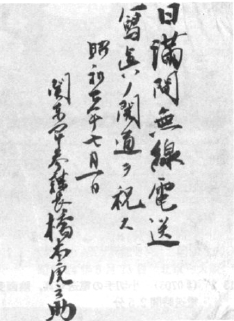 日満間無線電送
写真ノ開通ヲ祝ス
昭和十年七月一日
関東軍参謀長橋本虎之助